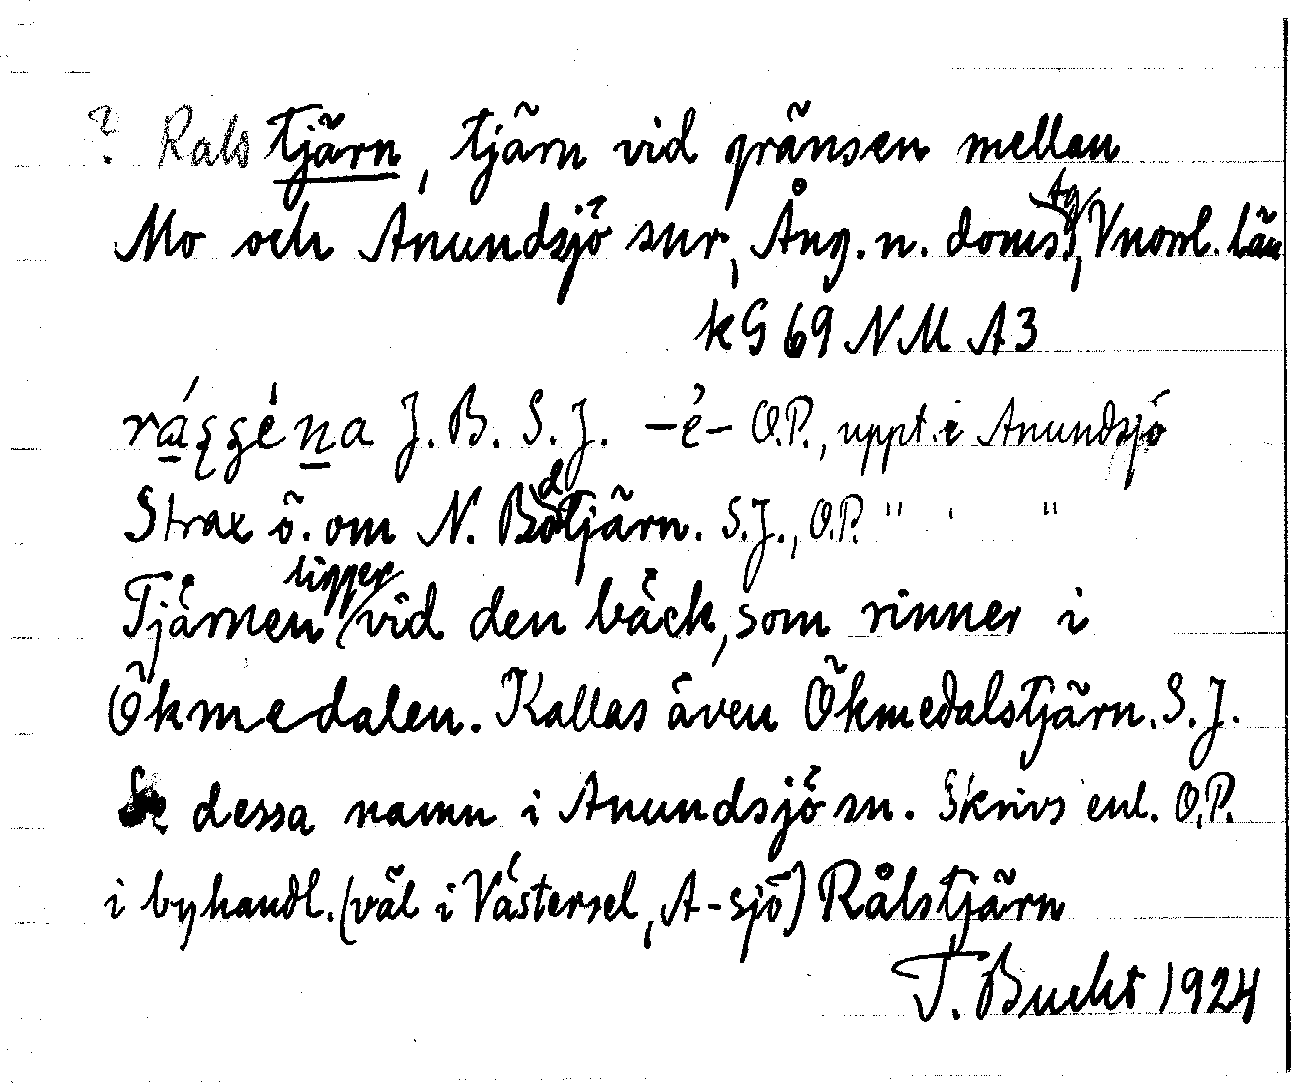 ? Rals tjärn, tjärn vid gränsen mellan
Mo och Anundsjö snr, Ång. n. doms tg, Vnorrl. län
kG 69 NM A3
J. B. S. J. -è- O.P., uppt. i Anundsjö
Strax ö. om N. Bödtjärn. S.J., O.P. " " "
Tjärnen ligger vid den bäck, som rinner i
Ökmedalen. Kallas även Ökmedalstjärn. S. J.
Se dessa namn i Anundsjö sn. Skrivs enl. O.P.
i byhandl. (väl i Västersel, A-sjö) Rålstjärn
T. Bucht 1924